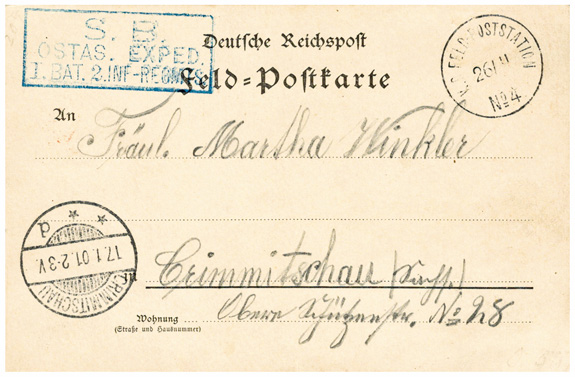 S. B.
OSTAS. EXPED.
I. BAT. 2. INF-REGMTS.
Deutsche Reichspost
Feld=Postkarte
K.D. FELD-POSTSTATION
26/11
No 4
An
Fräul. Martha Winkler
CRIMMITSCHAU
17.1.01.2-3V.
* * d
in
Crimmitschau (Sachs.)
Obere Schützenstr. No 28
Wohnung
(Straße und Hausnummer)